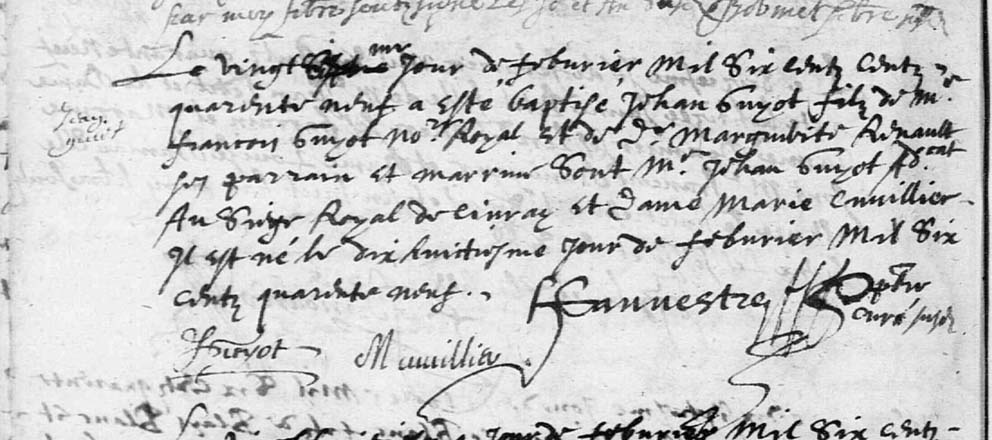 Le vingt me Jour de feburier Mil Six centz centz
quarente neuf a esté baptise Jehan Guyot filz de Me
francois Guyot nore Royal et de De Marguerite Renault
ses parrain et marrine Sont Me Jehan Guyot Adcat
Au Siege Royal de civray et Dame Marie Cuvillier
Il est né le dix huictiesme Jour de feburier Mil Six
centz quarente neuf.
curé susd
JGuyot M Cuvillier
Jour de feburier Mil Six centz